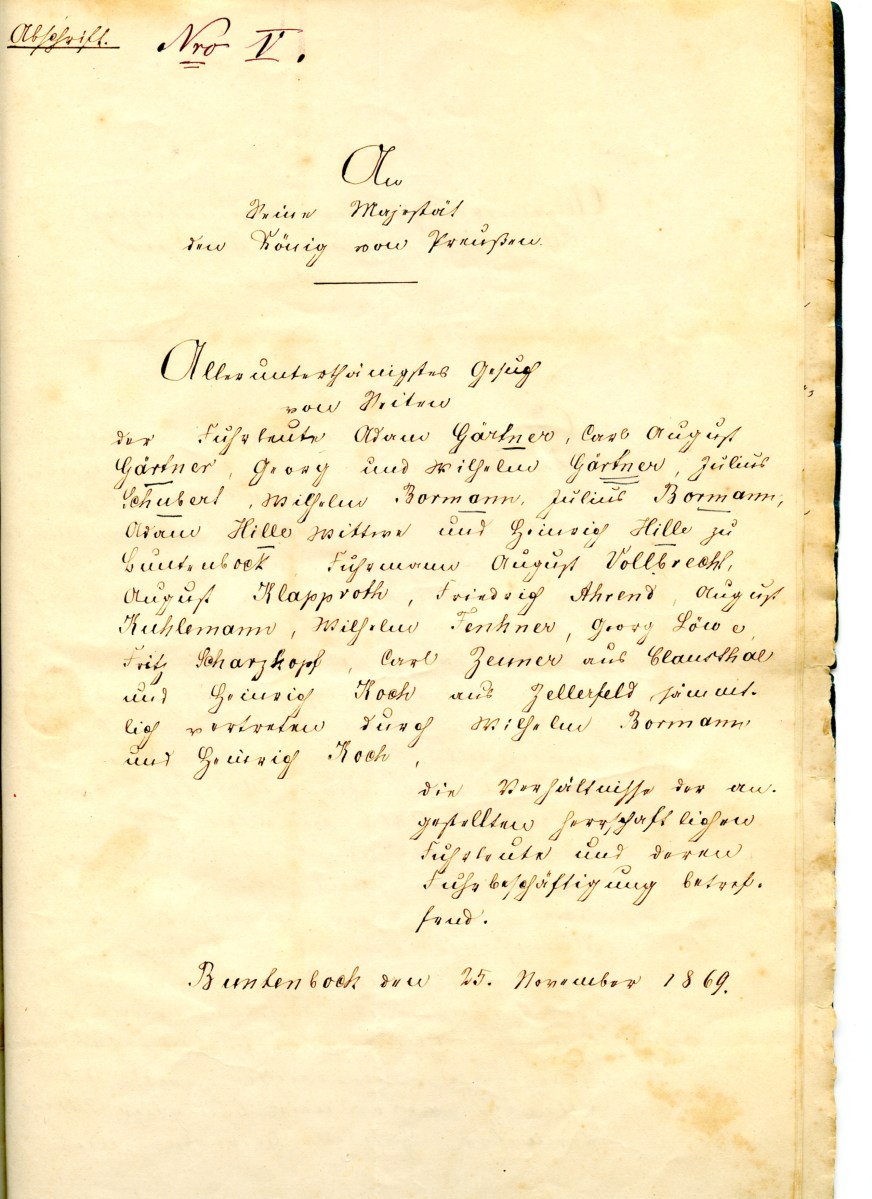 Abschrift.
Nro V.
An
Seine Majestät
den König von Preußen.
Allerunterthänigstes Gesuch
von Seiten
der Fuhrleute Adam Gärtner, Carl August
Gärtner, Georg und Wilhelm Gärtner, Julius
Schubert, Wilhelm Bormann, Julius Bormann,
Adam Hille Wittwe und Heinrich Hille zu
Buntenbock, Fuhrmann August Vollbrecht,
August Klapproth, Friedrich Ahrend, August
Kuhlemann, Wilhelm Fenkner, Georg Löwe,
Fritz Scharzkopf, Carl Zenner aus Clausthal
und Heinrich Koch aus Zellerfeld, sämmt-
lich vertreten durch Wilhelm Bormann
und Heinrich Koch,
die Verhältnisse der an-
gestellten herrschaftlichen
Fuhrleute und deren
Fuhrbeschäftigung betref-
fend.
Buntenbock den 25. November 1869.